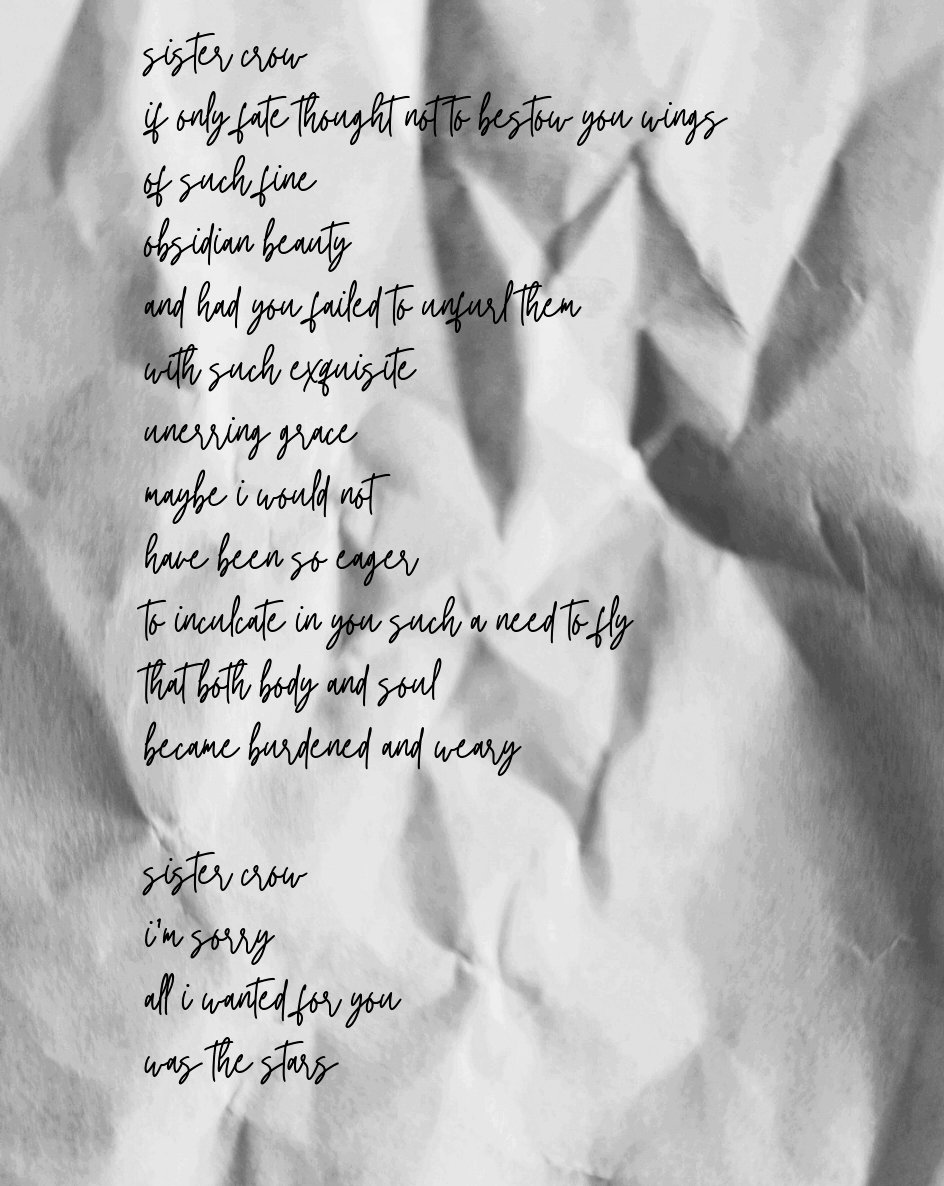 sister crow
if only fate thought not to bestow you wings
of such fine
obsidian beauty
and had you failed to unfurl them
with such exquisite
unerring grace
maybe i would not
have been so eager
to inculcate in you such a need to fly
that both body and soul
became burdened and weary
sister crow
i'm sorry
all i wanted for you
was the stars